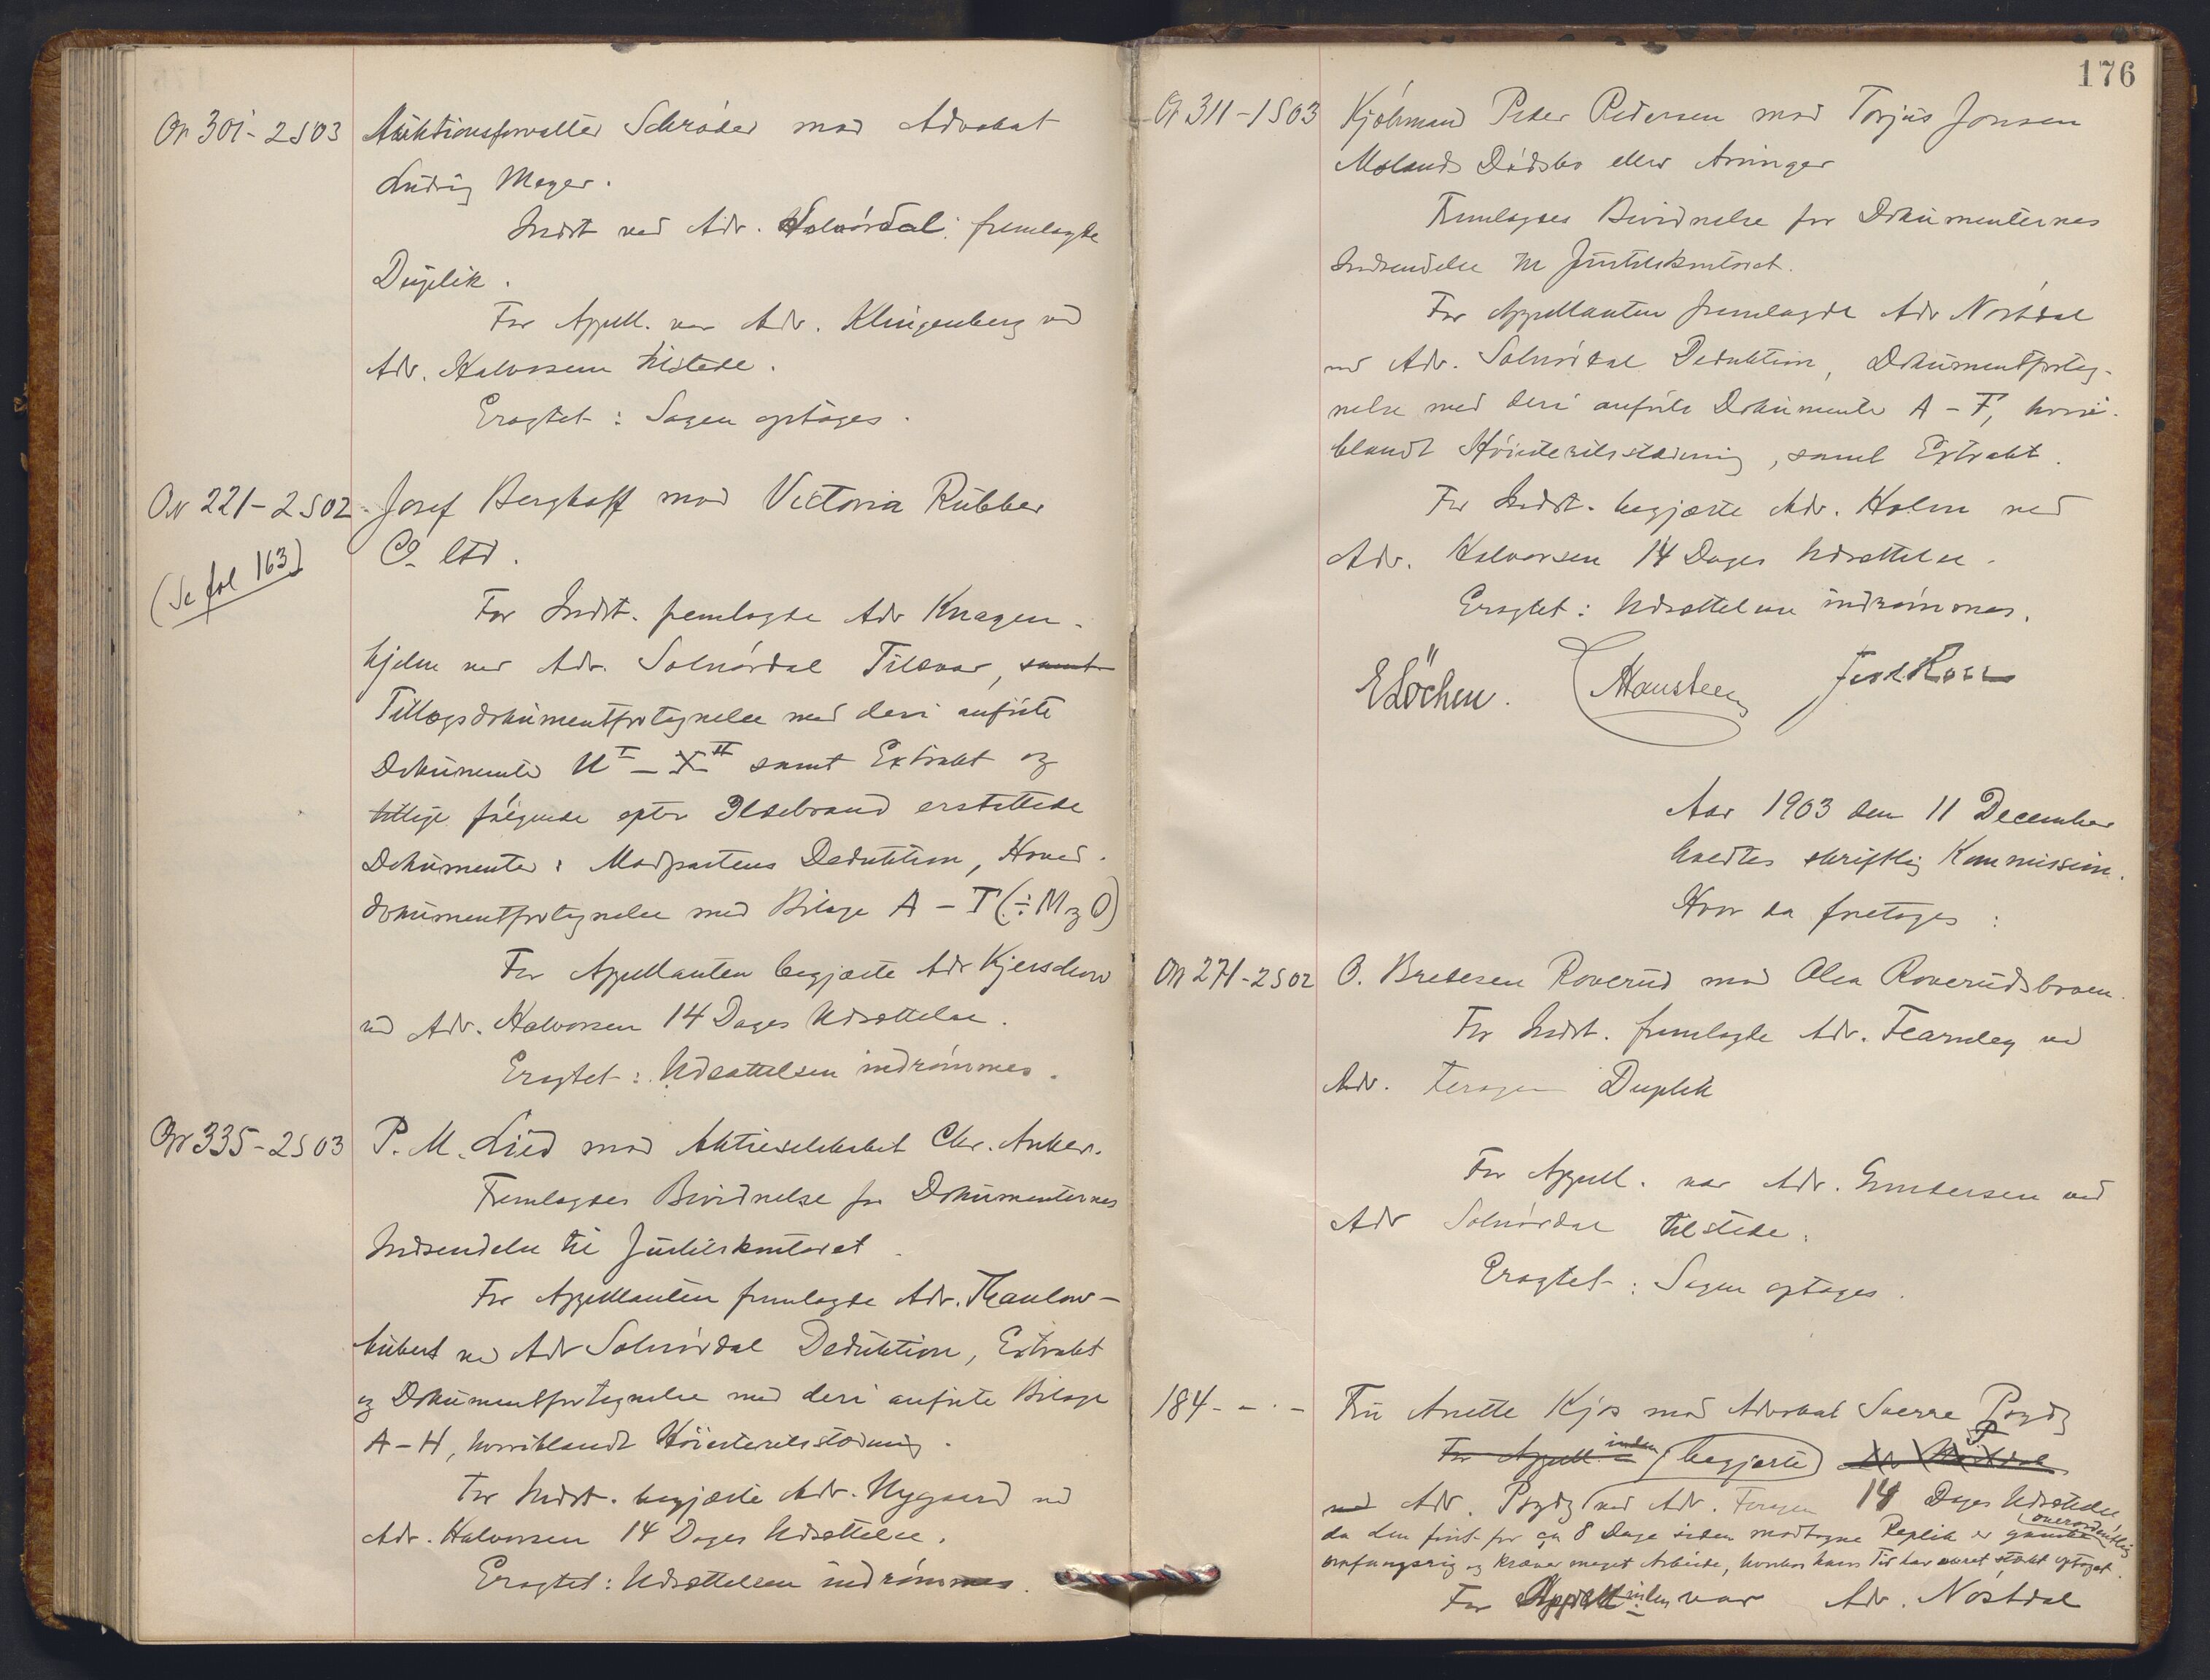 Or 301-2S03
Auktionsforvalter Schrøder mod Advokat
Ludvig Meyer.
Indst ved Adv. Solnørdal fremlagde
Duplik.
For Appell. var Adv. Klingenberg ved
Adv. Halvorsen tilstede.
Eragtet: Sagen optages.
Or 221-2S02
(Se fol 163)
Josef Berghoff mod Victoria Rubber
Co ltd.
For Indst. fremlagde Adv Knagen-
hjelm ved Adv. Solnørdal Tilsvar, samt
Tillægsdokumentfortegnelse med deri anførte
Dokumenter U I – X II samt Extrakt og
tillige følgende efter Ildebrand erstattede
Dokumenter: Modpartens Deduktion, Hoved-
dokumentfortegnelse med Bilage A – T (÷ M og O)
For Appellanten begjærte Adv Kjerschow
ved Adv. Halvorsen 14 Dages Udsættelse.
Eragtet: Udsættelsen indrømmes.
Or 335-2S03
P. M. Lied mod Aktieselskabet Chr. Anker.
Fremlagdes Bevidnelse for Dokumenternes
Indsendelse til Justitskontoret.
For Appellanten fremlagde Adv. Thaulow-
ved Adv Solnørdal Deduktion, Extrakt
og Dokumentfortegnelse med deri anførte Bilage
A-H, hvoriblandt Høiesteretsstævning.
For Indst. begjærte Adv. Nygaard ved
Adv. Halvorsen 14 Dages Udsættelse.
Eragtet: Udsættelsen indrømmes.
176
Or 311-1S03
Kjøbmand Peder Pedersen mod Torjus Jonsen
Molands Dødsbo eller Arvinger
Fremlagdes Bevidnelse for Dokumenternes
Indsendelse til Justitskontoret.
For Appellanten fremlagde Adv Nørdal
ved Adv. Solnørdal Deduktion, Dokumentforteg-
nelse med deri anførte Dokumenter A – F, hvori-
blandt Høiesteretsstævning, samt Extrakt.
For Indst. begjærte Adv. Holm ved
Adv. Halvorsen 14 Dages Udsættelse.
Eragtet: Udsættelsen indrømmes.
E Löchen. Hansteen
Aar 1903 den 11 December
holdtes skriftlig Kommission.
Hvor da foretoges:
Or 271-2S02
O. Bredesen Roverud mod Olea Roverudsbraaten.
For Indst. fremlagde Adv. Fearnley ved
Adv. Duplik
For Appell. var Adv. Gundersen ved
Adv Solnørdal tilstede.
Eragtet: Sagen optages.
184- – · –
Fru Anette Kjos mod Advokat Sverre
For Appellinden begjærte
ved Adv. ved Adv. 14 Dages Udsættelse
da den først for ca 8 Dage siden modtagne Replik er ganske overordentlig
omfangsrig og kræver meget Arbeide, hvorhos hans Tid har været stærkt optaget.
For Appellinden var Adv. Nørdal